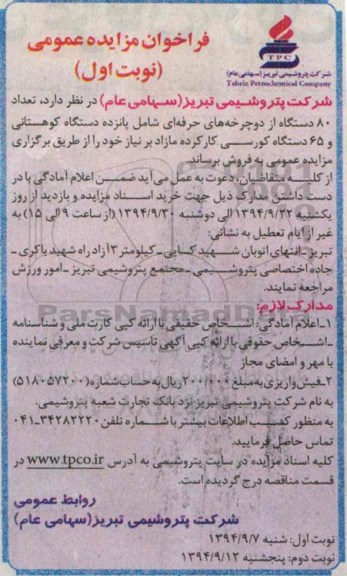 فراخوان مزایده عمومی
(نوبت اول)
TPC
شرکت پتروشیمی تبریز (سهامی عام)
Tabriz Petrochemical Company
شرکت پتروشیمی تبریز (سهامی عام) در نظر دارد، تعداد
۸۰ دستگاه از دوچرخه‌های حرفه‌ای شامل پانزده دستگاه کوهستانی
و ۶۵ دستگاه کورسی کارکرده مازاد بر نیاز خود را از طریق برگزاری
مزایده عمومی به فروش برساند.
از کلیه متقاضیان، دعوت به عمل می‌آید ضمن اعلام آمادگی با در
دست داشتن مدارک ذیل جهت خرید اسناد مزایده و بازدید از روز
یکشنبه ۱۳۹۴/۹/۲۲ الی دوشنبه ۱۳۹۴/۹/۳۰ (از ساعت ۹ الی ۱۵) به
غیر از ایام تعطیل به نشانی:
تبریز - انتهای اتوبان شهید کسایی - کیلومتر ۳ آزاد راه شهید باکری -
جاده اختصاصی پتروشیمی - مجتمع پتروشیمی تبریز - امور ورزش
مراجعه نمایند.
مدارک لازم:
۱- اعلام آمادگی: اشخاص حقیقی با ارائه کپی کارت ملی و شناسنامه
- اشخاص حقوقی با ارائه کپی آگهی تاسیس شرکت و معرفی نماینده
با مهر و امضای مجاز
۲- فیش واریزی به مبلغ ۲۰۰/۰۰۰ ریال به حساب شماره (۵۱۸۰۵۷۲۰۰)
به نام شرکت پتروشیمی تبریز نزد بانک تجارت شعبه پتروشیمی.
به منظور کسب اطلاعات بیشتر با شماره تلفن ۳۴۲۸۲۲۲۰-۰۴۱
تماس حاصل فرمایید.
کلیه اسناد مزایده در سایت پتروشیمی به آدرس www.tpco.ir در
قسمت مناقصه درج گردیده است.
روابط عمومی
شرکت پتروشیمی تبریز (سهامی عام)
نوبت اول: شنبه ۱۳۹۴/۹/۷
نوبت دوم: پنجشنبه ۱۳۹۴/۹/۱۲
ParsNamadData